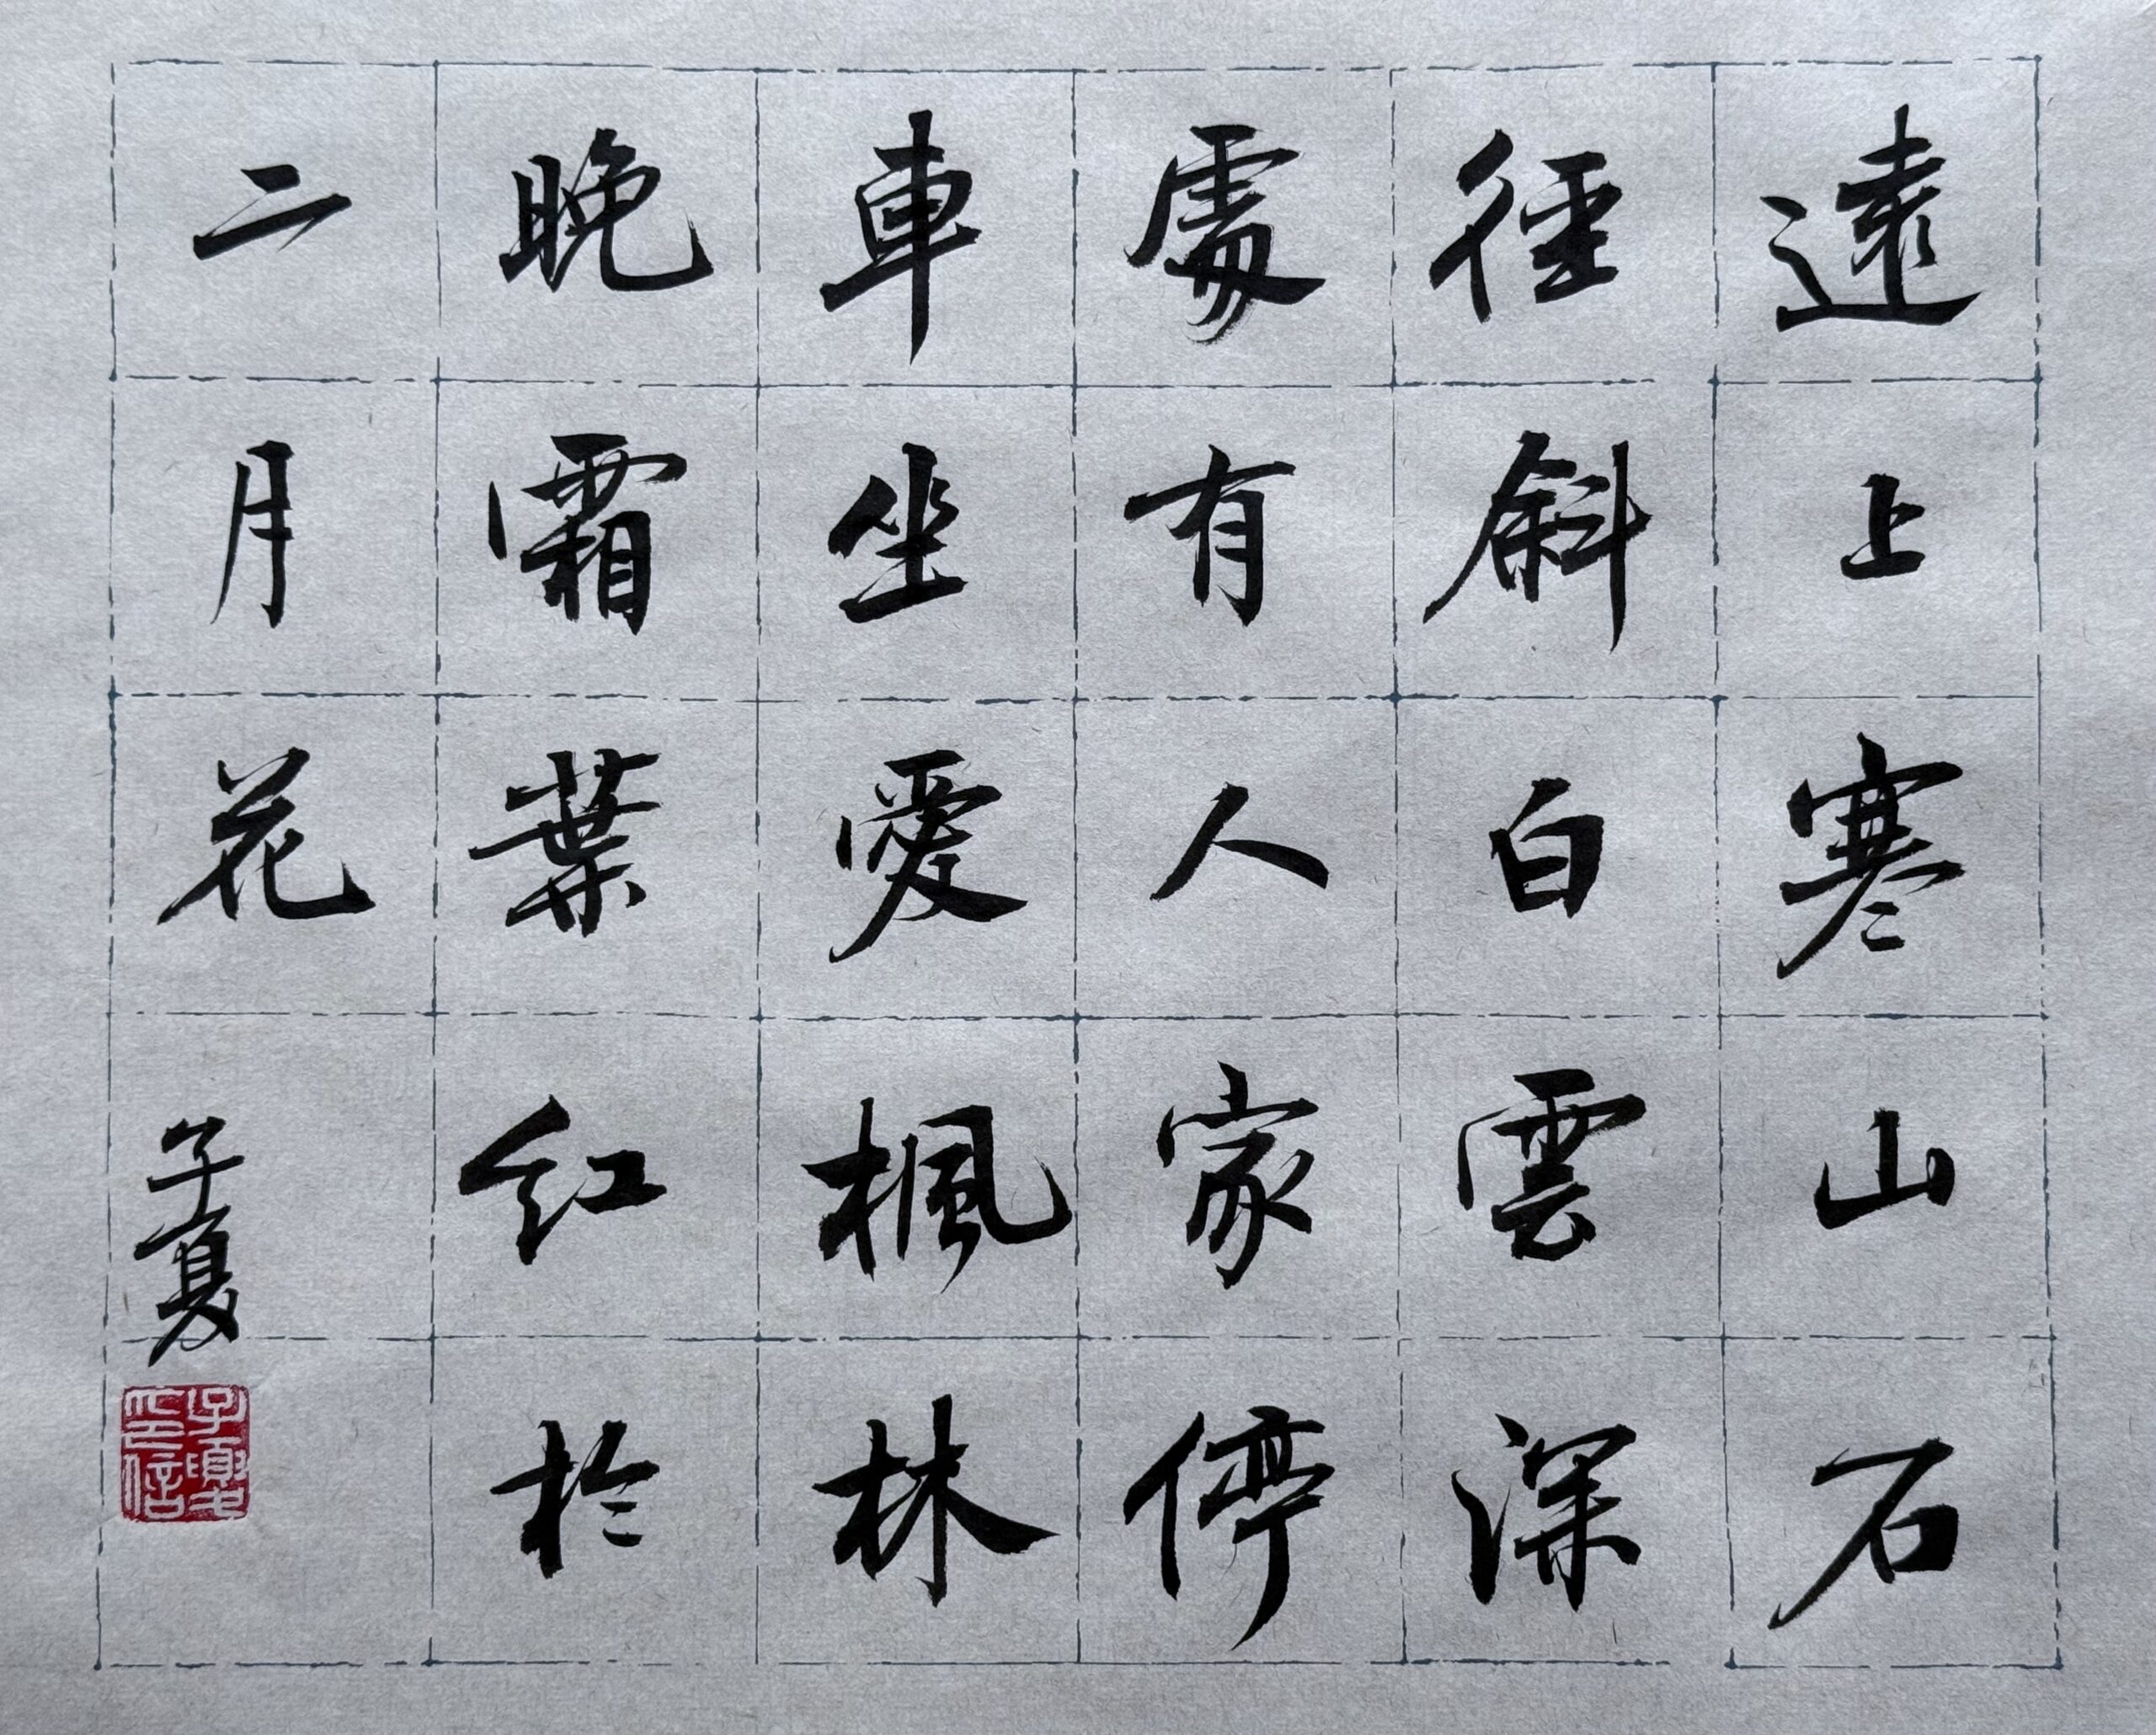 遠上寒山石
徑斜白雲深
處有人家停
車坐愛楓林
晚霜葉紅於
二月花
子夏
子夏之印信